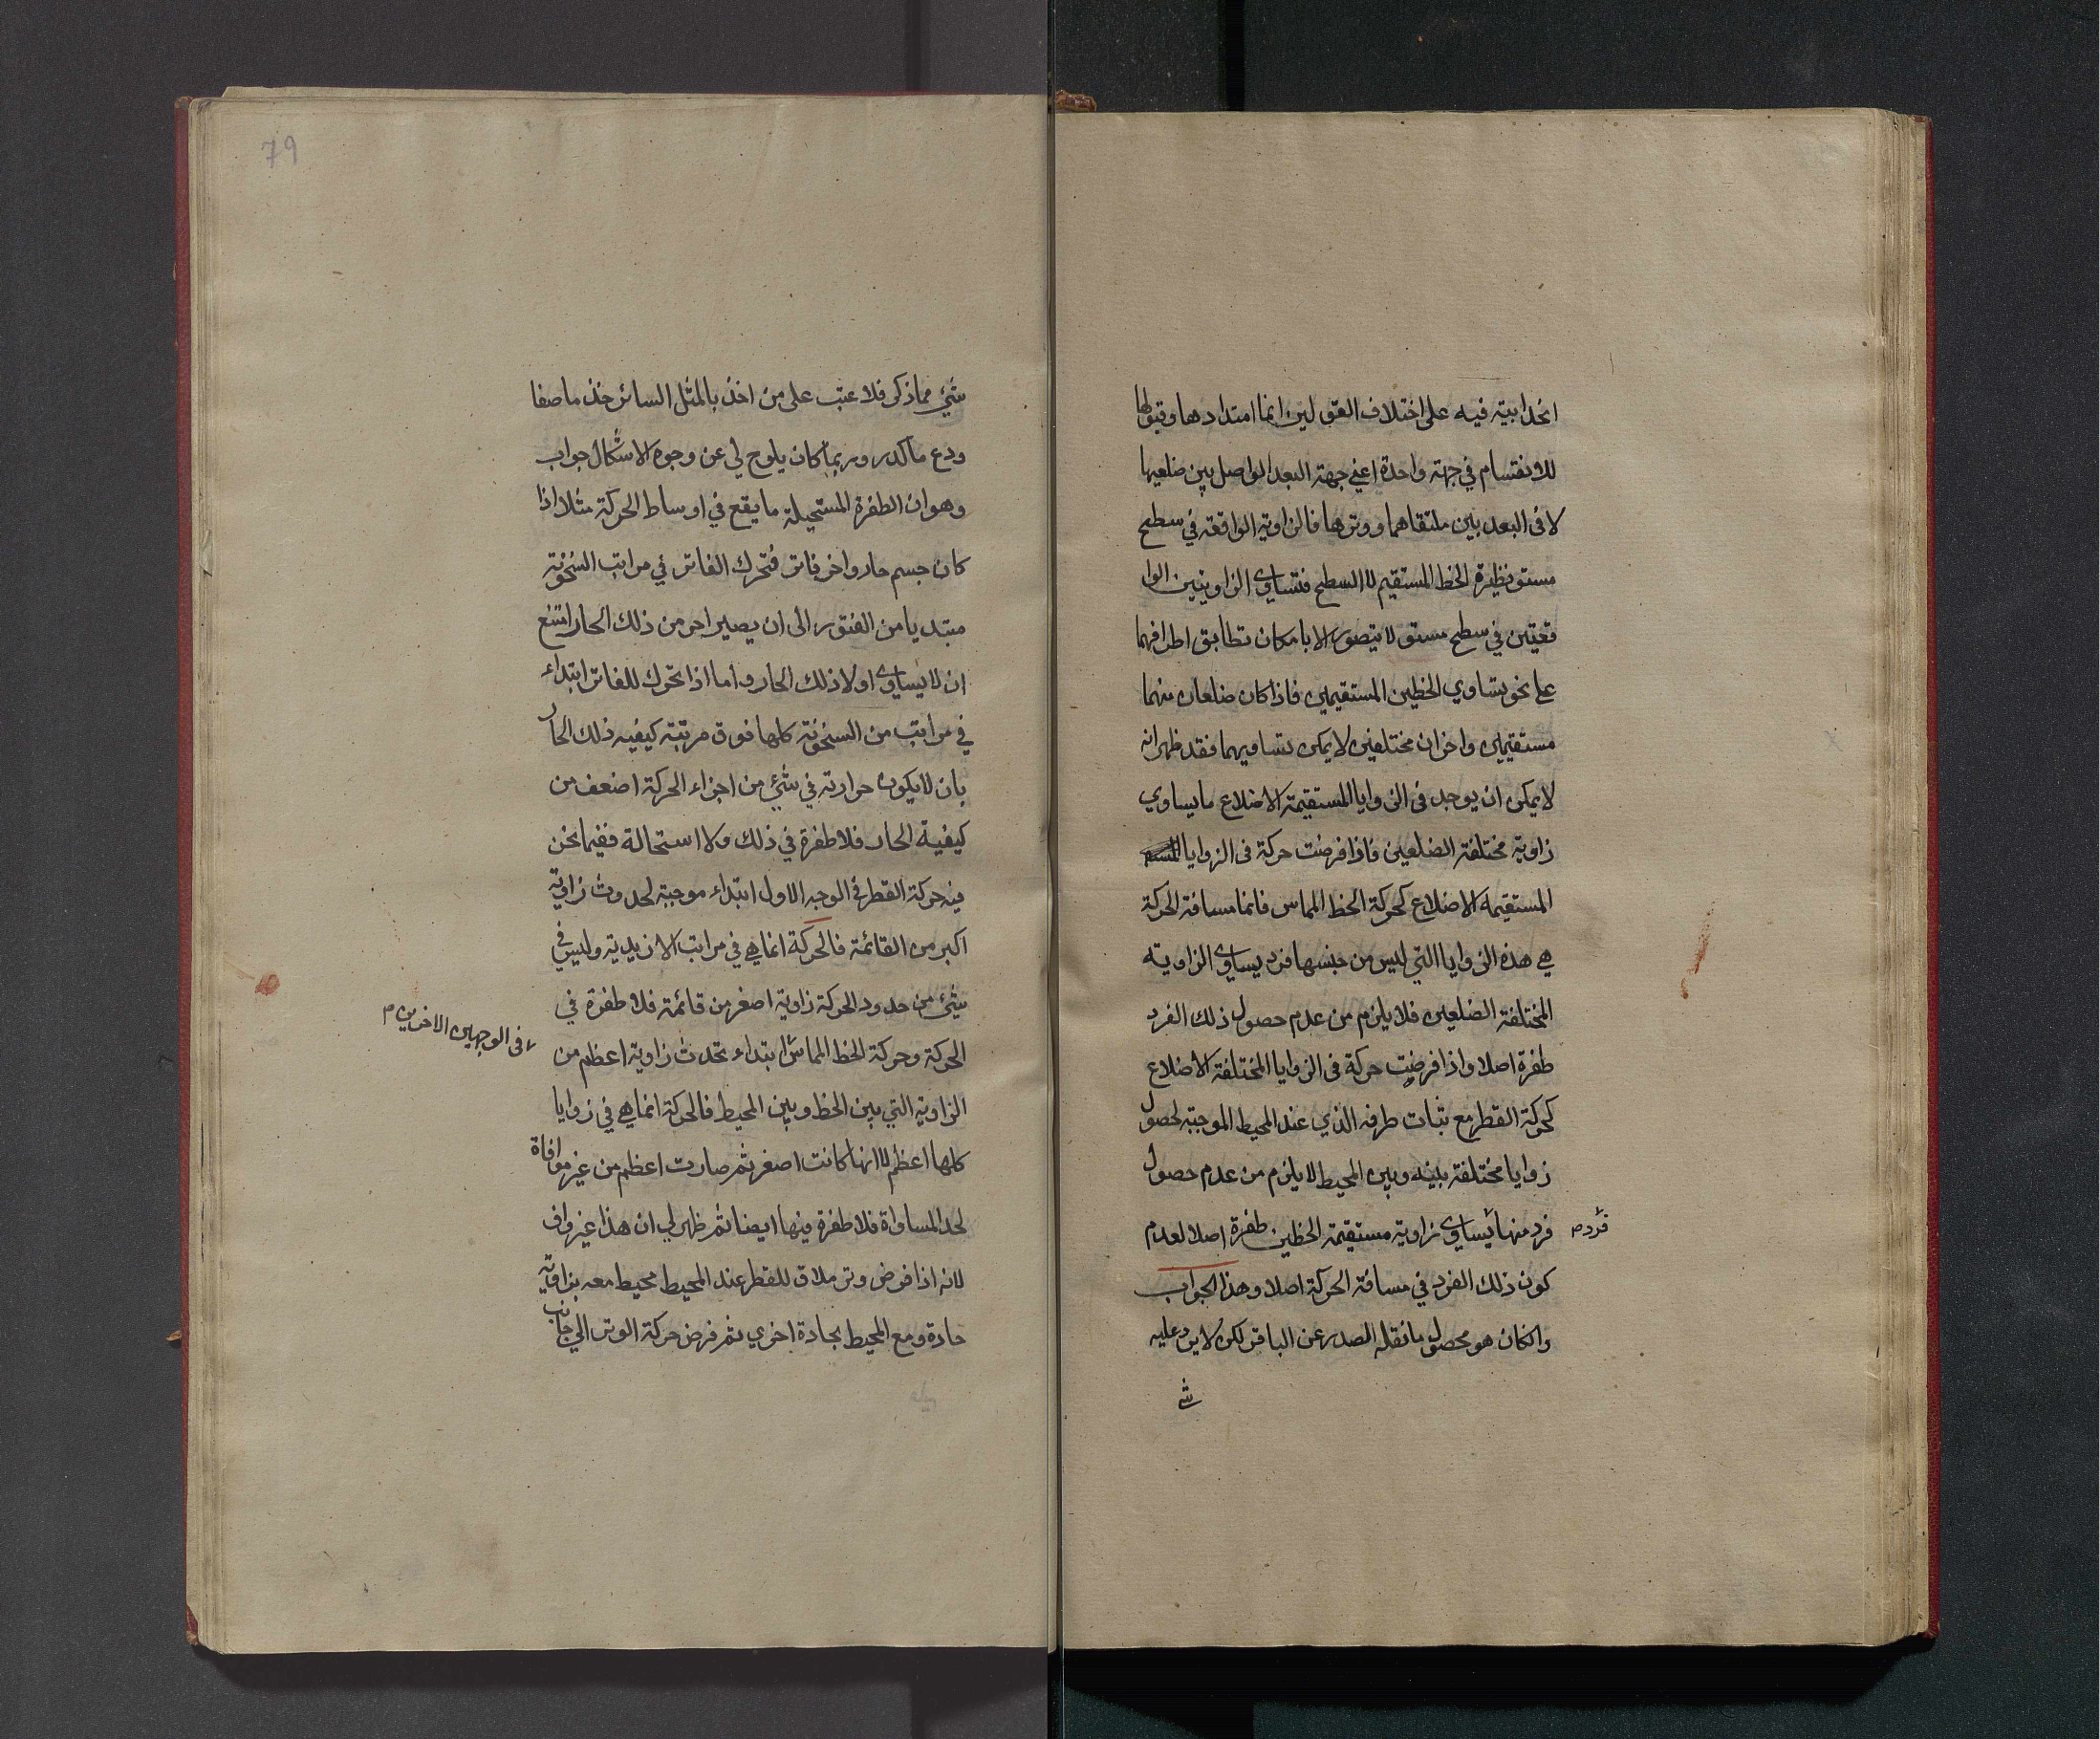 انحدابية فيه على اختلاف القولين انما امتدادها وقبولها
للانقسام في جهة واحدة اعني جهة البعد الواصل بين ضلعيها
لا فى البعد بين ملتقاهما ووترها فالزاوية الواقعة في سطح
مستو نظيرة الخط المستقيم لا السطح فتساوى الزاويتين الوا
قعتين في سطح مستو لا يتصور الا بامكان تطابق اطرافهما
على نحو تساوي الخطين المستقيمين فاذا كان ضلعان منهما
مستقيمين واخران مختلفين لا يمكن تساويهما فقد ظهر انه
لا يمكن ان يوجد فى الزوايا المستقيمة الاضلاع ما يساوي
زاوية مختلفة الضلعين فاذا فرضت حركة فى الزوايا
المستقيمة الاضلاع كحركة الخط المماس فانما مسافة الحركة
هي هذه الزوايا التي ليس من جنسها فرد يساوى الزاوية
المختلفة الضلعين فلا يلزم من عدم حصول ذلك الفرد
طفرة اصلا واذا فرضت حركة فى الزوايا المختلفة الاضلاع
كحركة القطر مع ثبات طرفه الذي عند المحيط الموجبة لحصول
زوايا مختلفة بينه وبين المحيط لا يلزم من عدم حصول
فرد منها يساوى زاوية مستقيمة الخطين طفرة اصلا لعدم
فرد م
كون ذلك الفرد في مسافة الحركة اصلا وهذا الجواب
وانكان هو محصول ما نقله الصدر عن الباقر لكن لا يرد عليه
شئ
79
شيئ مما ذكر فلا عتب على من اخذ بالمثل السائر خذ ما صفا
ودع ما كدر وربما كان يلوح لي عن وجوه الاشكال جواب
وهو ان الطفرة المستحيلة ما يقع في اوساط الحركة مثلا اذا
كان جسم حار واخر فاتر فتحرك الفاتر في مراتب السخونة
مبتديا من الفتور الى ان يصير احر من ذلك الحار امتنع
ان لا يساوى اولا ذلك الحار واما اذا تحرك للفاتر ابتداء
في مراتب من السخونة كلها فوق مرتبة كيفيه ذلك الحار
بان لا يكون حرارته في شيئ من اجزاء الحركة اضعف من
كيفية الحار فلا طفرة في ذلك ولا استحالة ففيما نحن
فيه حركة القطر في الوجه الاول ابتداء موجبة لحدوث زاوية
اكبر من القائمة فالحركة انما هي في مراتب الازيدية وليس في
شيئ من حدود الحركة زاوية اصغر من قائمة فلا طفرة في
الحركة وحركة الخط المماس ابتداء تحدث زاوية اعظم من
فى الوجهين الاخرين م
الزاوية التي بين الخط وبين المحيط فالحركة انما هي في زوايا
كلها اعظم لا انها كانت اصغر ثم صارت اعظم من غير موافاة
لحد المساواة فلا طفرة فيها ايضا ثم ظهر لي ان هذا غير واف
لانه اذا فرض وتر ملاق للقطر عند المحيط محيط معه بزاوية
حادة ومع المحيط بحادة اخري ثم فرض حركة الوتر الي جانب